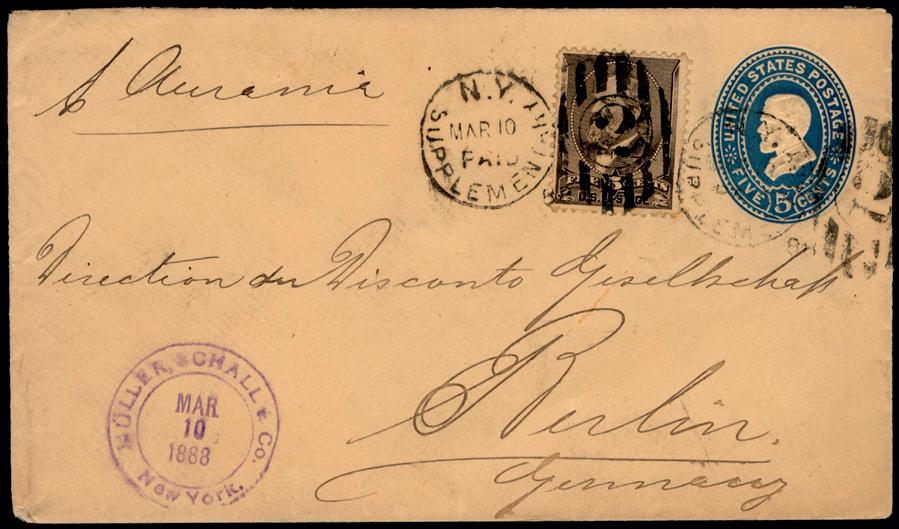 p Aurania
N.Y.
MAR 10
PAID
SUPPLEMENTARY
2
5
U.S. POSTAGE
UNITED STATES POSTAGE
FIVE 5 CENTS
N.Y.
SUPPLEM
Direction der Disconto Gesellschaft
Berlin.
Germany
MÜLLER, SCHALL & Co.
MAR
10
1888
New York.